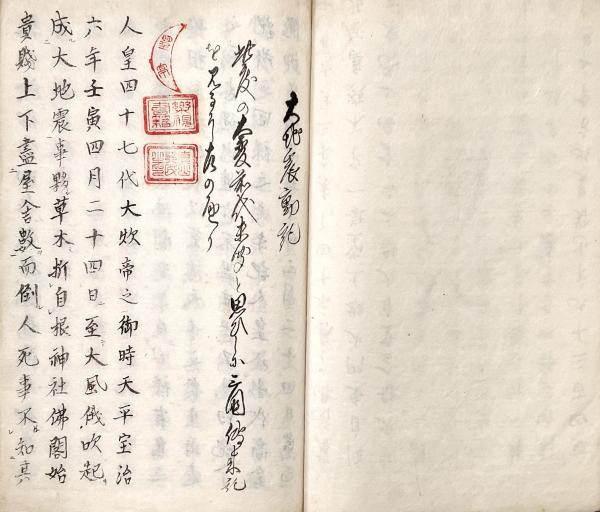 大地震動記
此度の大変前代未聞と思ひしに三園傳来記
を見るに左の通り
人皇四十七代大炊帝之御時天平宝治
六年壬寅四月二十四日至大風俄吹起
成大地震事夥草木折自根神社佛閣始
貴賤上下盡屋舎數而倒人死事不知其